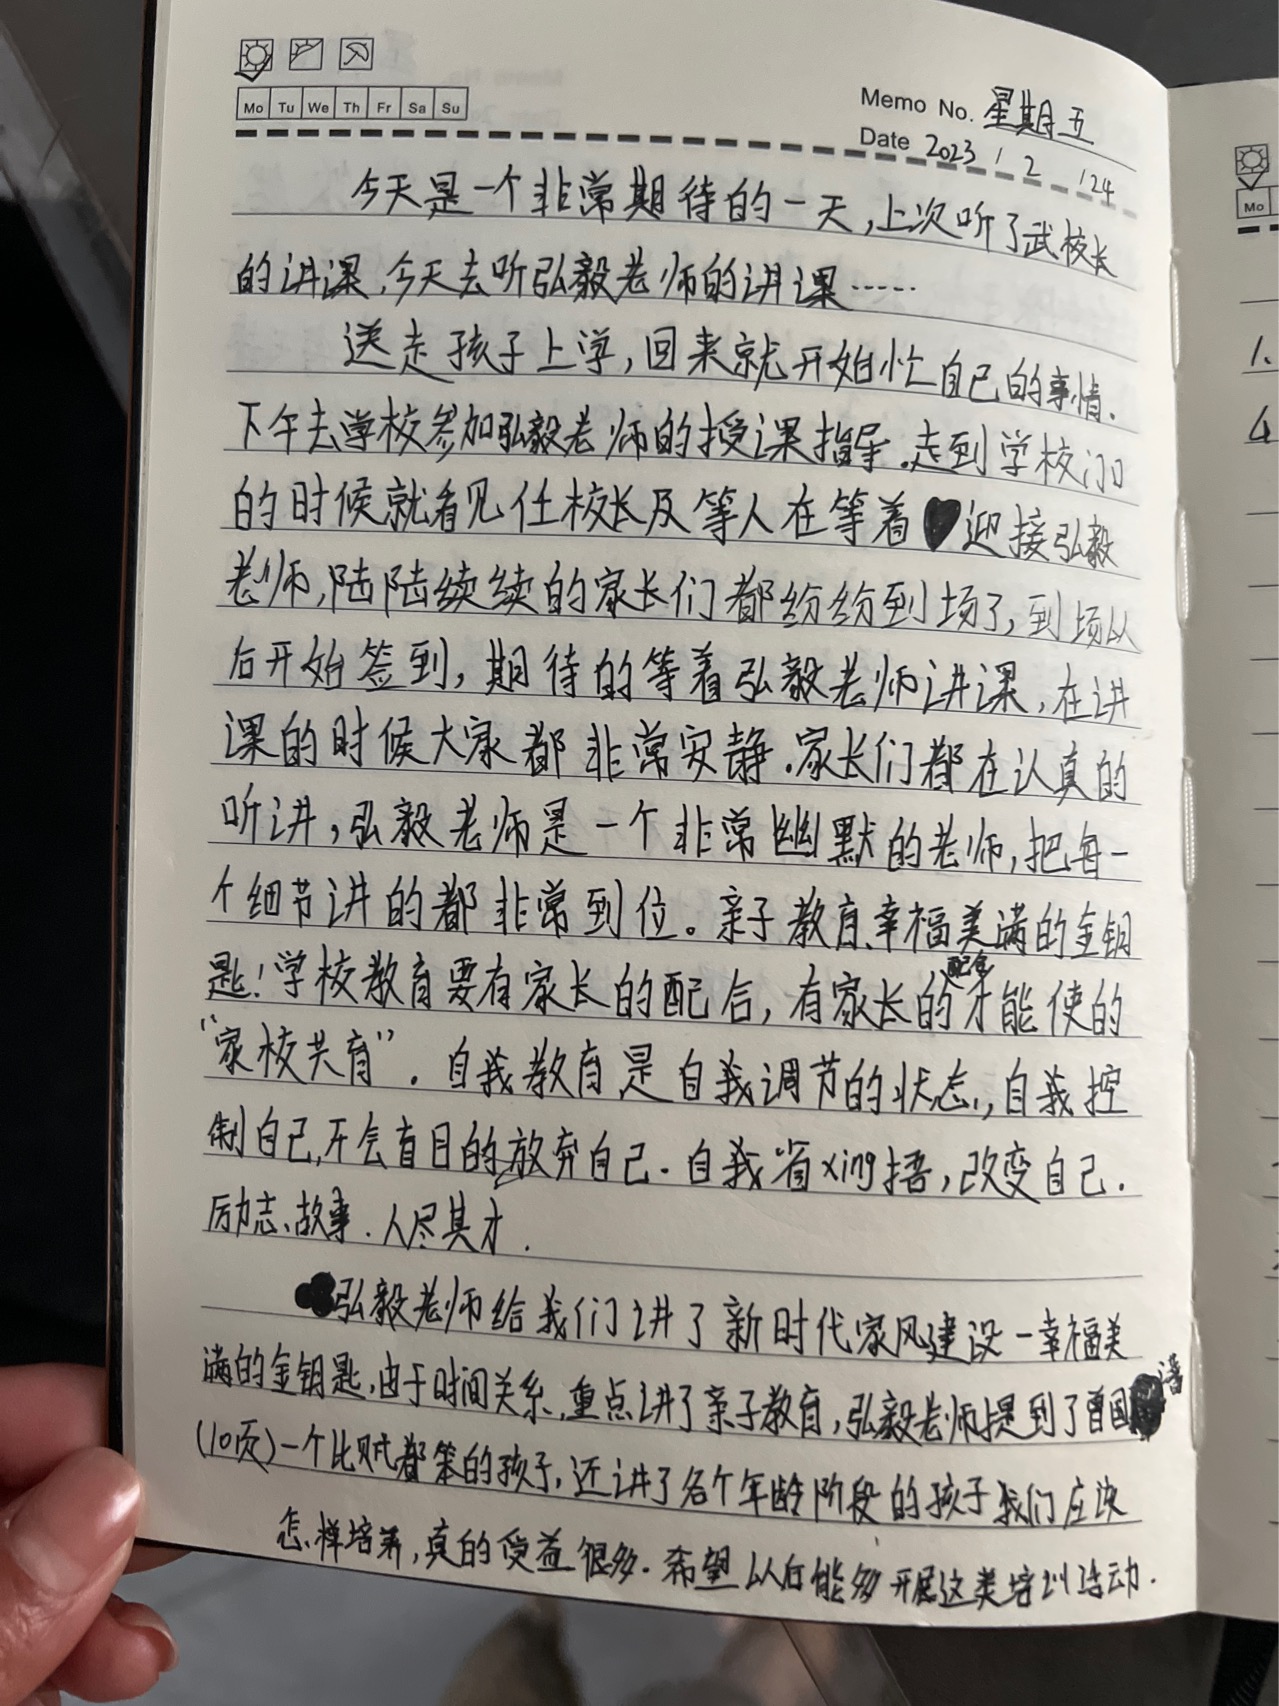 Mo Tu We Th Fr Sa Su
Memo No. 星期五
Date 2023 / 2 / 24
今天是一个非常期待的一天，上次听了武校长
的讲课，今天去听弘毅老师的讲课……
送走孩子上学，回来就开始忙自己的事情.
下午去学校参加弘毅老师的授课指导.走到学校门口
的时候就看见任校长及等人在等着 迎接弘毅
老师,陆陆续续的家长们都纷纷到场了,到场以
后开始签到,期待的等着弘毅老师讲课,在讲
课的时候大家都非常安静.家长们都在认真的
听讲,弘毅老师是一个非常幽默的老师,把每一
个细节讲的都非常到位。亲子教育、幸福美满的金钥
匙!学校教育要有家长的配合,有家长的配合才能使的
“家校共育”.自我教育是自我调节的状态,自我控
制自己,不会盲目的放弃自己.自我省xing悟,改变自己.
励志、故事.人尽其才.
弘毅老师给我们讲了新时代家风建设一幸福美
满的金钥匙,由于时间关系,重点讲了亲子教育,弘毅老师提到了曾国藩
(10页)一个比贼都笨的孩子,还讲了各个年龄阶段的孩子我们应该
怎样培养,真的受益很多.希望以后能多开展这类培训活动.
Mo
1.